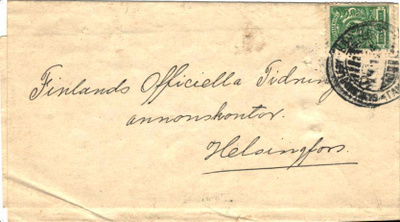 Finlands Officiella Tidning
annonskontor.
Helsingfors.